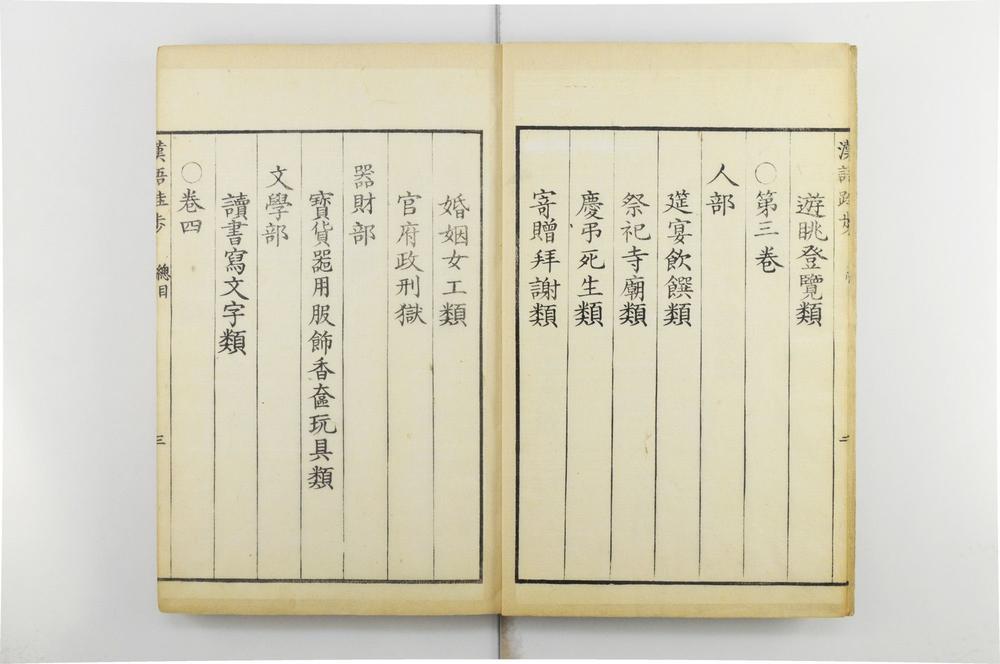 遊眺登覽類
○第三卷
人部
筵宴飲饌類
祭祀寺廟類
慶弔死生類
寄贈拜謝類
二
婚姻女工類
官府政刑獄
器財部
寳貨噐用服飾香奩玩具類
文學部
讀書寫文字類
○卷四
漢語跬步
總目
三